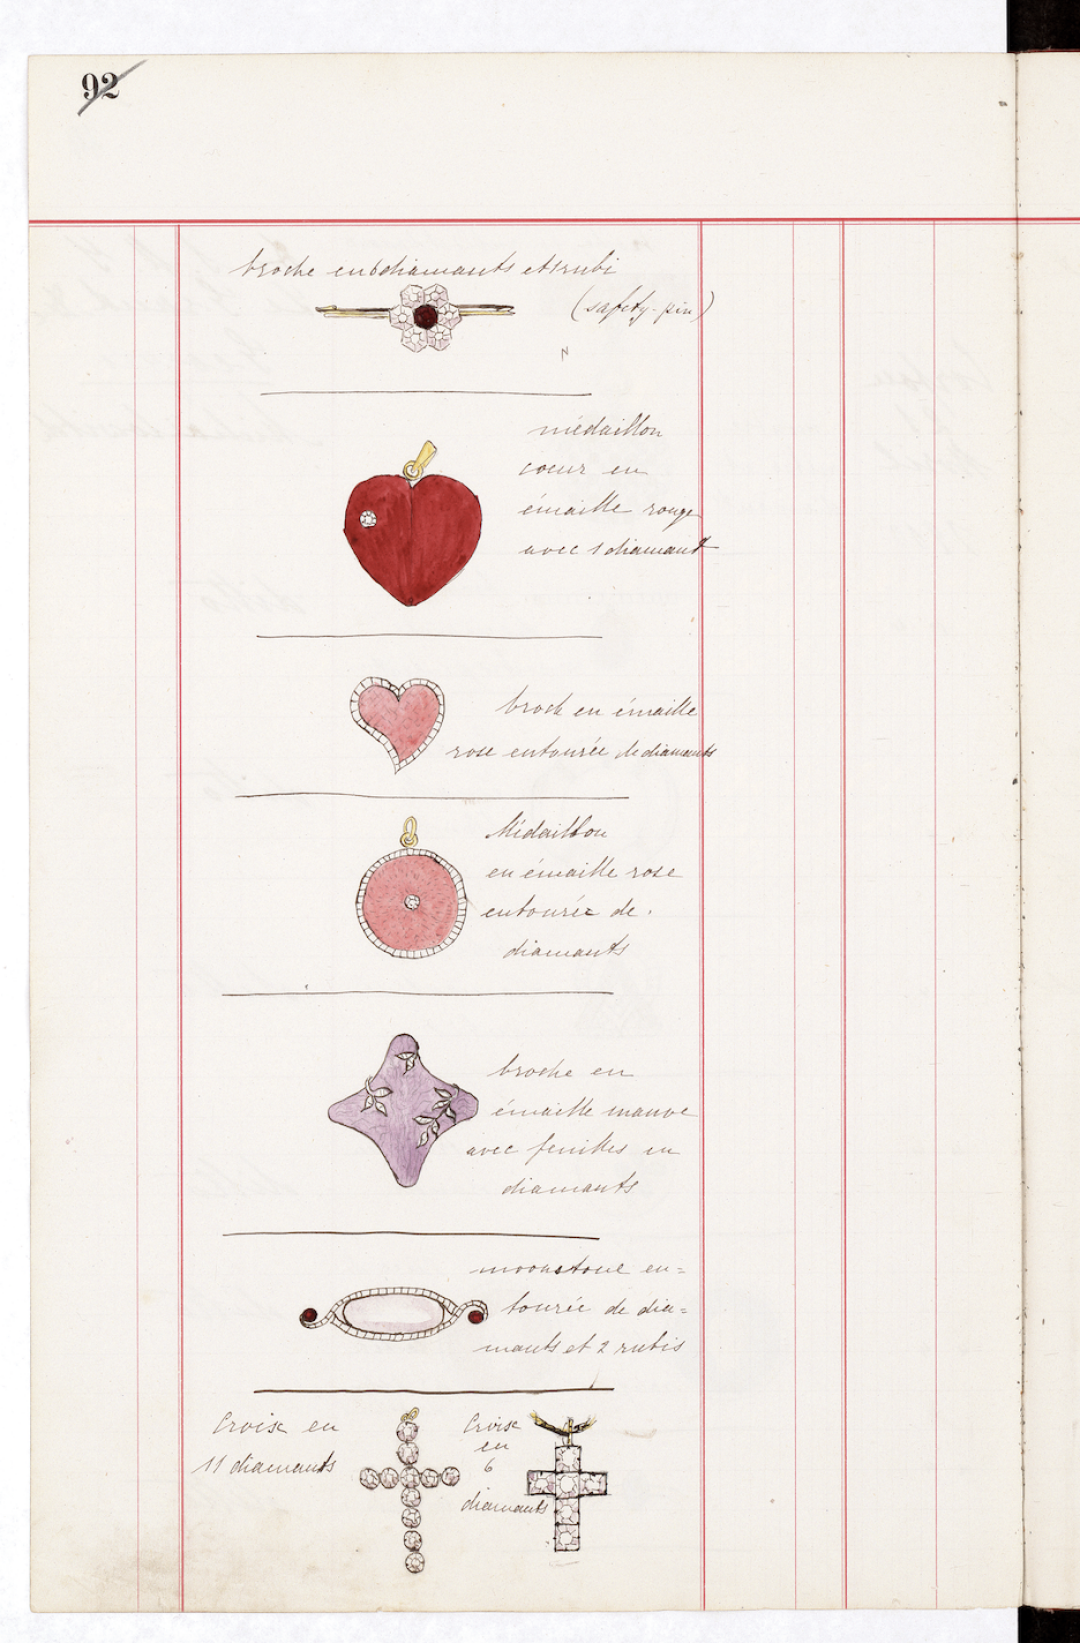 92
broche en 6 diamants et 1 rubi
(safety-pin)
médaillon
coeur en
émaille rouge
avec 1 diamant
brosh en émaille
rose entourée de diamants
Médaillon
en émaille rose
entourée de
diamants
broche en
émaille mauve
avec feuilles en
diamants
moonstone en=
tourée de dia=
mants et 2 rubis
Croise en
11 diamants
Croise
en
6
diamants